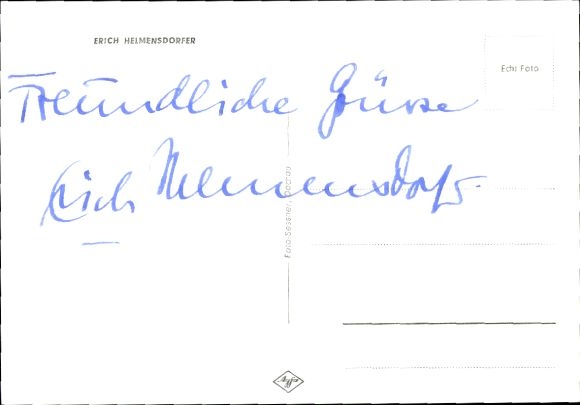 ERICH HELMENSDORFER
Echt Foto
Freundliche Grüsse
Erich Helmensdorfer
Foto-Sessner, Dachau
Agfa